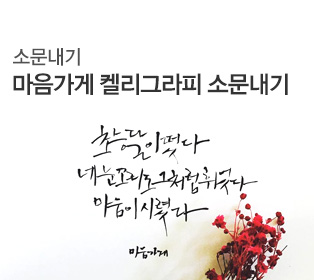 소문내기
마음가게 켈리그라피 소문내기
초승달이 떴다
네 눈꼬리도 그처럼 휘었다
마음이 시렸다
마음가게